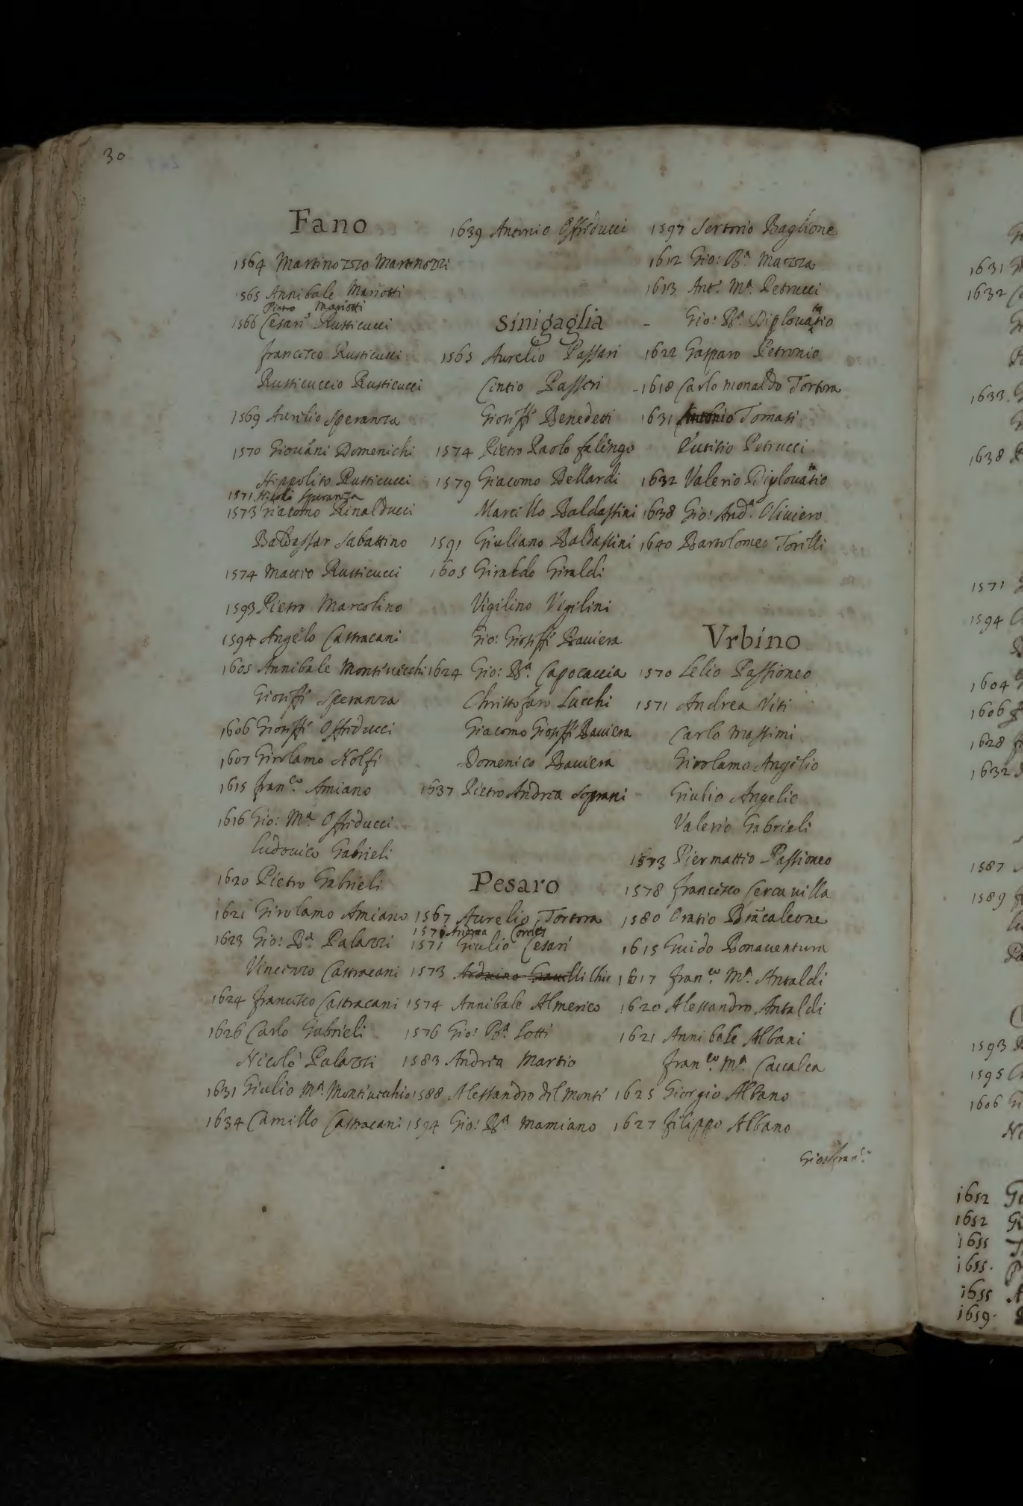 30
Fano
1564 Martinozzo Martinozzi
1565 Annibale Mariotti
Piero Mariotti
1566 Cesare Rusticucci
francesco Rusticucci
Rusticuccio Rusticucci
1569 Aurelio Speranza
1570 Giovãni Domenichi
Hippolito Rusticucci
1571 Speranza
1573 Giacomo Rinalducci
Baldassar Sabattino
1574 Matteo Rusticucci
1593 Pietro Marcolino
1594 Angelo Castracani
1605 Annibale Montivecchi
Gioseffo Speranza
1606 Gioseffo Offreducci
1607 Girolamo Nolfi
1615 fran.co Amiano
1616 Gio: M.a Offreducci
Ludovico Gabrieli
1620 Pietro Gabrieli
1621 Girolamo Amiano
1623 Gio: B.a Palazzi
Vincenzo Castracani
1624 francesco Castracani
1626 Carlo Gabrieli
Nicolò Palazzi
1631 Giulio M.a Montivecchio
1634 Camillo Castracani
1639 Antonio Offreducci
Sinigaglia
1565 Aurelio Passari
Cintio Passeri
Gioseffo Benedetti
1574 Pietro Paolo falengo
1579 Giacomo Bellardi
Marcello Baldassini
1591 Giuliano Baldassini
1605 Giraldo Giraldi
Vigilino Vigilini
Gio: Gioseffo Baviera
1624 Gio: B.a Capocaccia
Christofaro Lucchi
Giacomo Gioseffo Baviera
Domenico Baviera
1637 Pietro Andrea Soprani
Pesaro
1567 Aurelio Tortora
1571
1571 Giulio Cesari
1573
1574 Annibale Almerico
1576 Gio: B.a Lotti
1583 Andrea Martio
1588 Alessandro del monte
1594 Gio: B.a Mamiano
1597 Sertorio Baglione
1612 Gio: B.a Mazza
1613 Ant.o M.a Petrucci
- Gio: B.a Diplovatio
1622 Gasparo Petronio
1618 Carlo monaldo Tortora
1631 Antonio Tomasi
Petrucci
1632 Valerio Diplovatio
1638 Gio: And.a Oliviero
1640 Bartolomeo Torelli
Vrbino
1570 Lelio Passioneo
1571 Andrea Viti
Carlo Massimi
Girolamo Angelio
Giulio Angelio
Valerio Gabrieli
1573 Piermatteo Passioneo
1578 francesco Cercavilla
1580 Oratio Brãcaleone
1615 Guido Bonaventura
1617 fran.co M.a Antaldi
1620 Alessandro Antaldi
1621 Annibale Albani
fran.co M.a Cavalca
1625 Giorgio Albano
1627 filippo Albano
1631
1632
1633
1638
1571
1594
1604
1606
1628
1632
1587
1589
1593
1595
1606
1652
1652
1655
1655
1655
1659